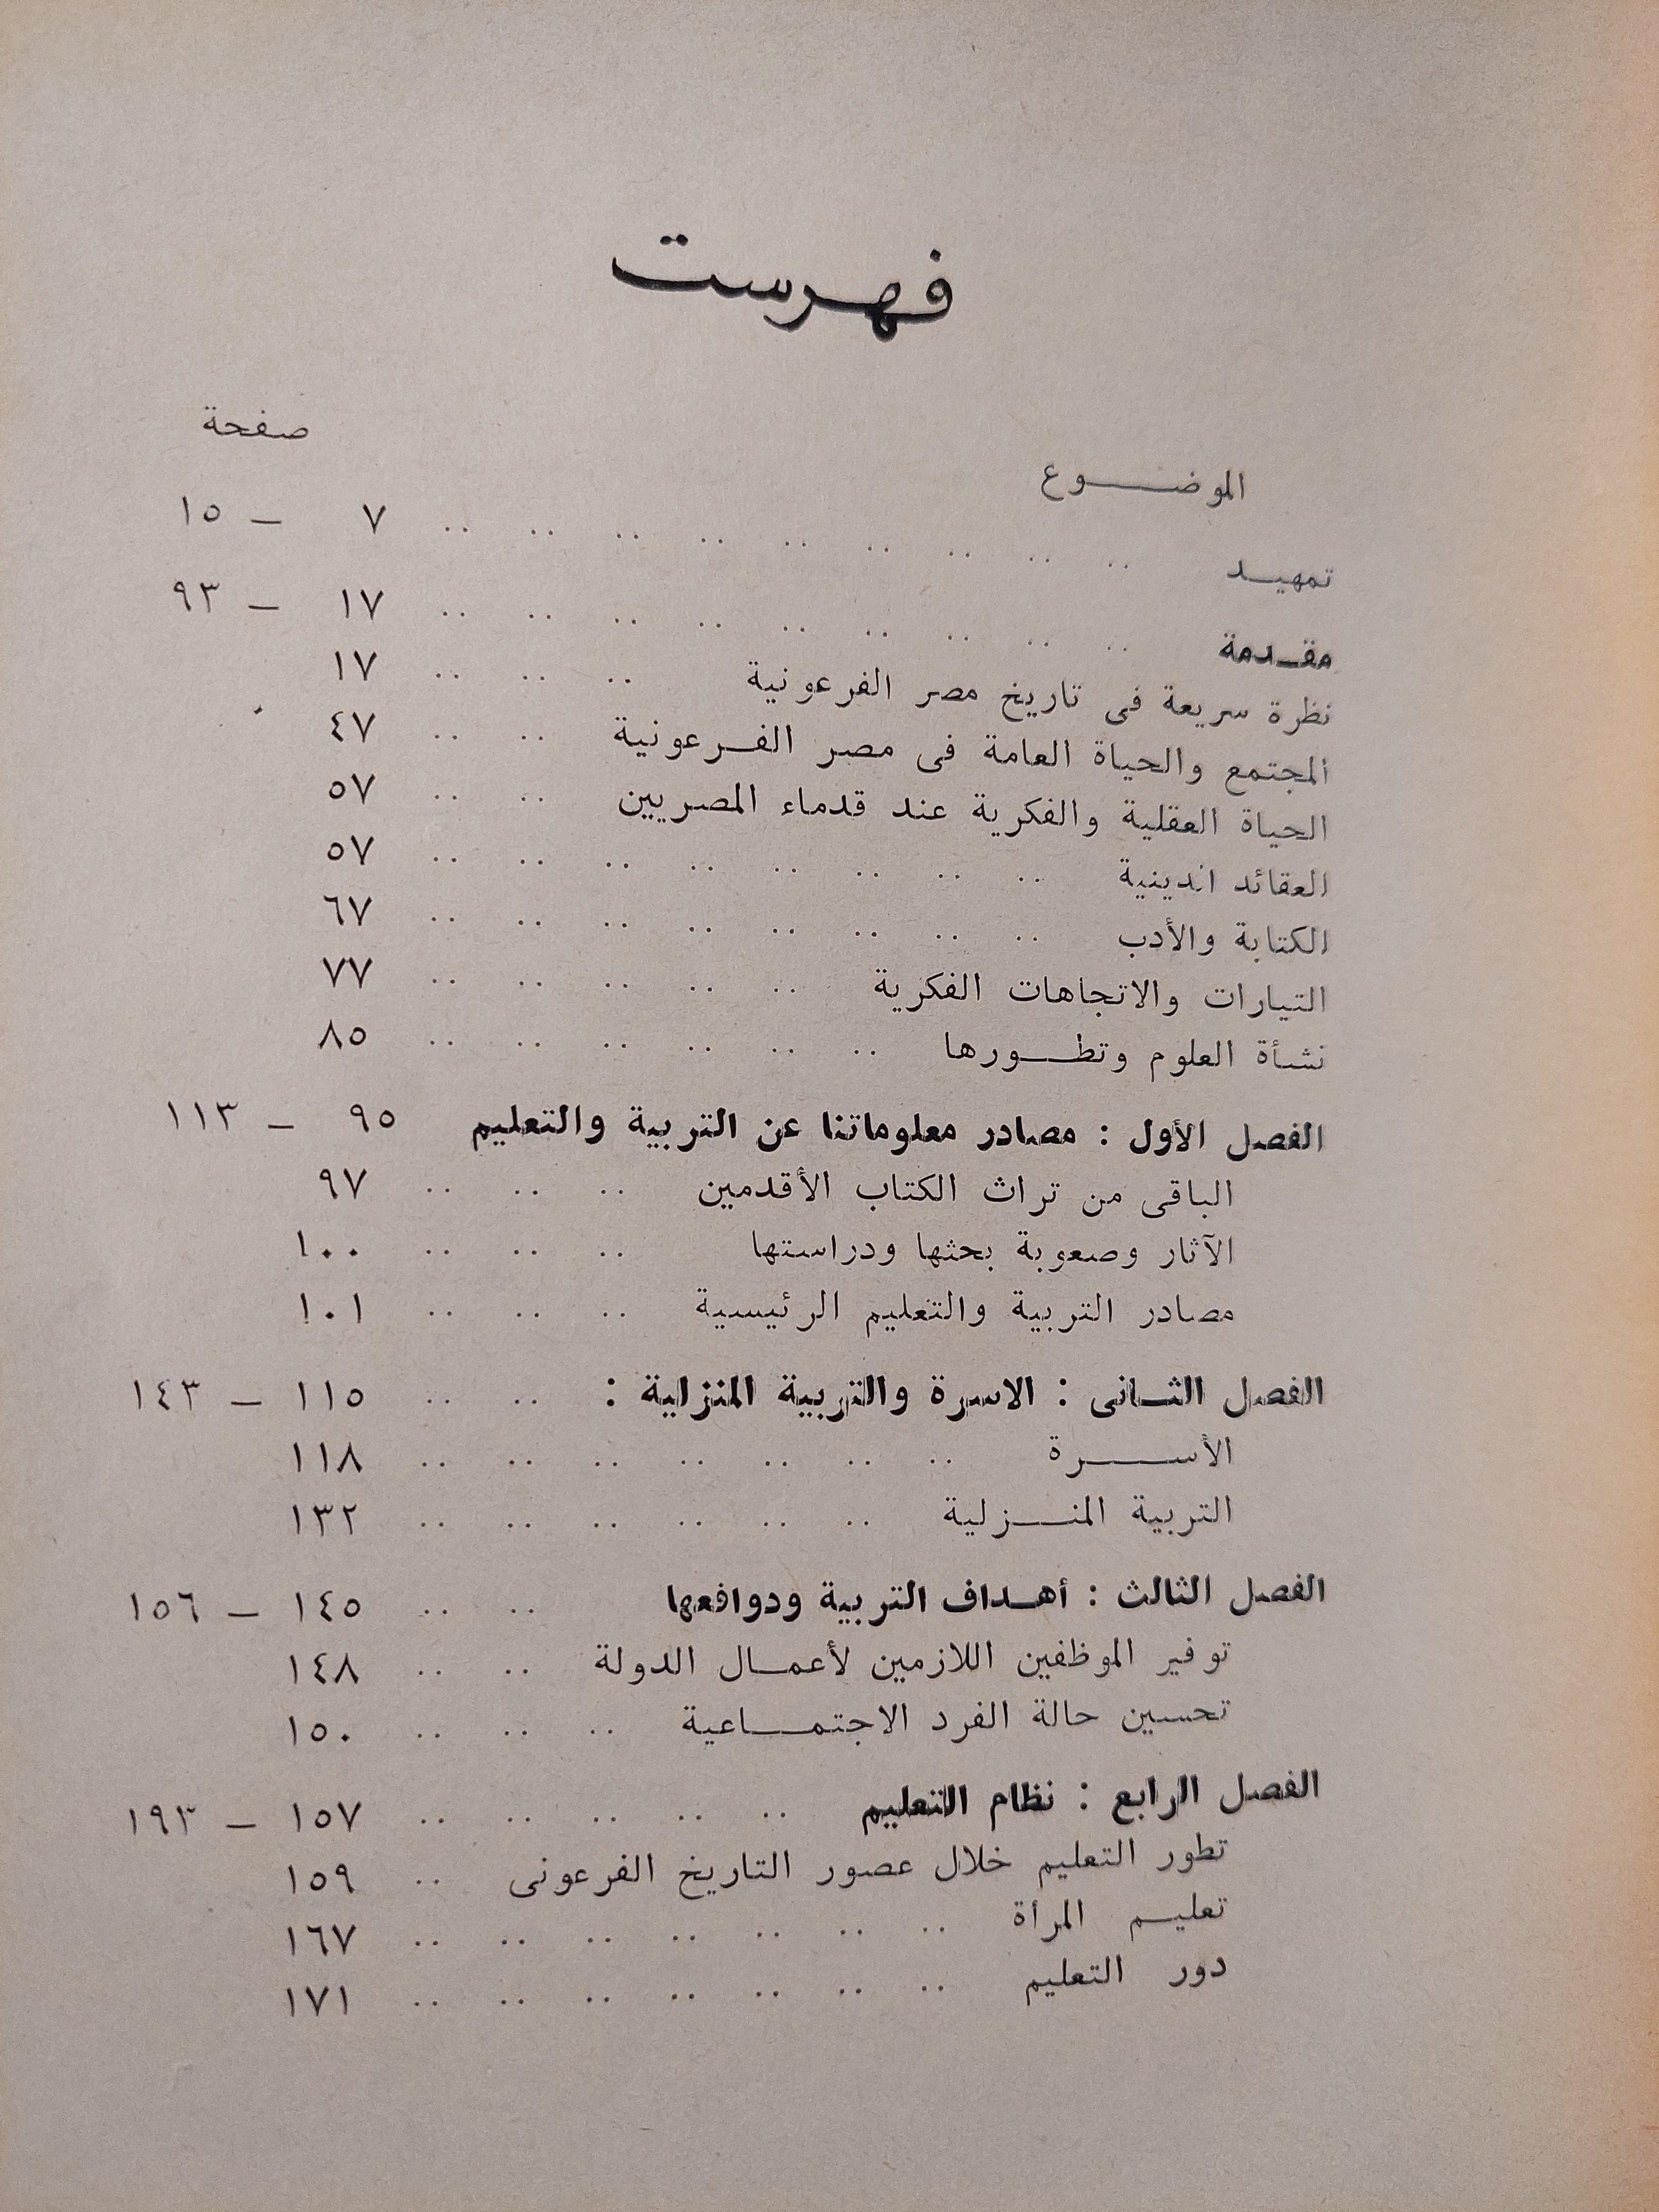 فهرست
صفحة
الموضوع
تمهيد .. .. .. .. .. .. .. .. .. ٧ – ١٥
مقدمة .. .. .. .. .. .. .. .. .. ١٧ – ٩٣
نظرة سريعة فى تاريخ مصر الفرعونية .. .. .. ١٧
المجتمع والحياة العامة فى مصر الفرعونية .. .. ٤٧
الحياة العقلية والفكرية عند قدماء المصريين .. .. ٥٧
العقائد الدينية .. .. .. .. .. .. .. .. ٥٧
الكتابة والأدب .. .. .. .. .. .. .. .. ٦٧
التيارات والاتجاهات الفكرية .. .. .. .. .. ٧٧
نشأة العلوم وتطورها .. .. .. .. .. .. ٨٥
الفصل الأول : مصادر معلوماتنا عن التربية والتعليم ٩٥ – ١١٣
الباقى من تراث الكتاب الأقدمين .. .. .. ٩٧
الآثار وصعوبة بحثها ودراستها .. .. .. ١٠٠
مصادر التربية والتعليم الرئيسية .. .. .. ١٠١
الفصل الثانى : الاسرة والتربية المنزلية : .. .. ١١٥ – ١٤٣
الأسرة .. .. .. .. .. .. .. ١١٨
التربية المنزلية .. .. .. .. .. .. ١٣٢
الفصل الثالث : أهداف التربية ودوافعها .. .. ١٤٥ – ١٥٦
توفير الموظفين اللازمين لأعمال الدولة .. .. ١٤٨
تحسين حالة الفرد الاجتماعية .. .. .. ١٥٠
الفصل الرابع : نظام التعليم .. .. .. .. .. ١٥٧ – ١٩٣
تطور التعليم خلال عصور التاريخ الفرعونى .. ١٥٩
تعليم المرأة .. .. .. .. .. .. .. ١٦٧
دور التعليم .. .. .. .. .. .. .. ١٧١